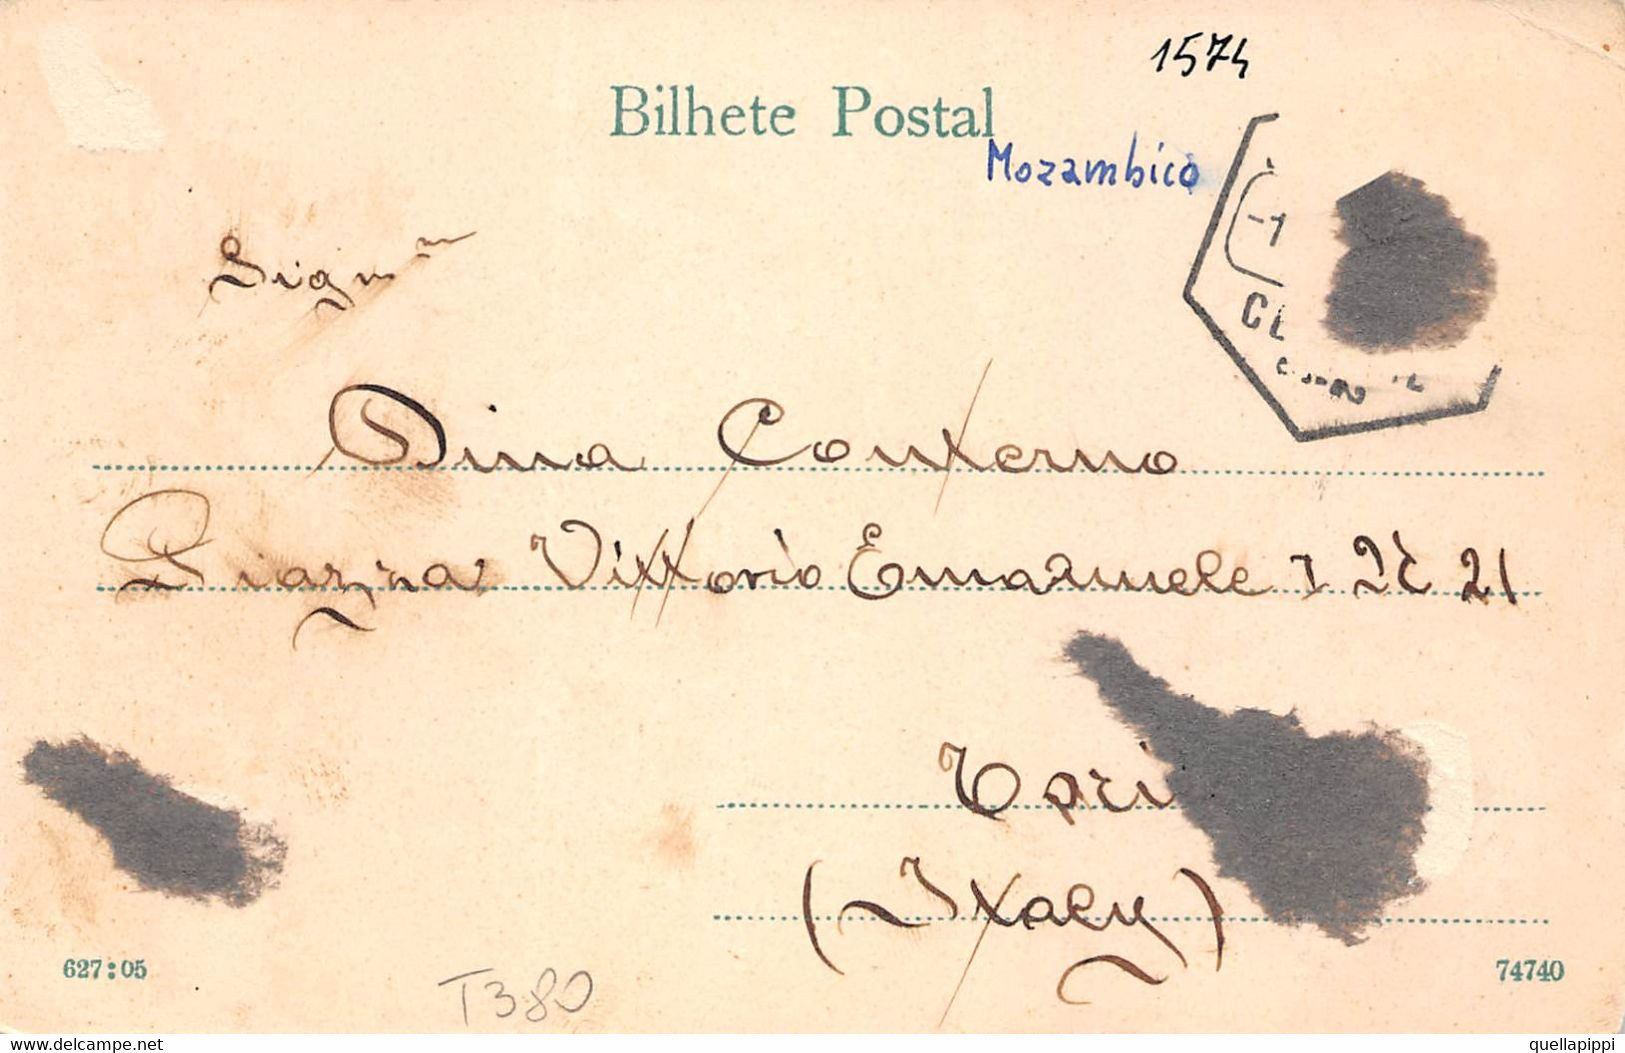 1574
Bilhete Postal
Mozambico
-1
Dina Conterno
Piazza Vittorio Emanuele I Nº 21
Tori
(Italy)
627:05
74740
T380
www.delcampe.net
quellapippi